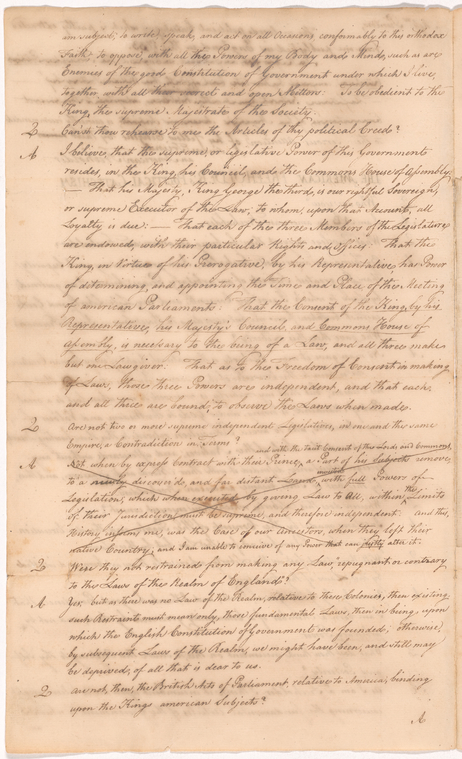 in subject; to write, speak, and act on all Occasions, conformably to this orthodox
Faith: to oppose, with all the Powers of my Body and Mind, such as are
Enemies of the good Constitution of Government under which I live,
together with all their secret and open Abettors: To be obedient to the
King, the supreme Majistrate of the Society.
Q Canst thou rehearse to me the Articles of thy political Creed?
A I believe that the supreme, or legislative Power of this Government
resides, in the King, his Council, and the Commons House of Assembly
— That his Majesty, King George the third, is our rightful Sovereign,
or supreme Executor of the Law, to whom, upon that Account, all
Loyalty is due: — That each of the three Members of the Legislature
are endowed, with their particular Rights and Offices: That the
King, in Virtue of his Prerogative, by his Representative, has Power
of determining, and appointing the Time and Place of the Meeting
of american Parliaments: That the Consent of the King, by his
Representative, his Majesty's Council, and Commons House of
Assembly, is necessary to the being of a Law, and all three make
but one Lawgiver: That as to the Freedom of Consent in making
of Laws, those three Powers are independent, and that each
and all three are bound, to observe the Laws when made.
Q Are not two or more supreme independent Legislatures, in one and the same
Empire, a Contradiction in Terms?
and with the tacit Consent of the Lords and Commons,
A Not when by express Contract with their King, a Part of his Subjects remove
to a newly discovered and far distant Land, with full Powers of
Legislation, which when executed by giving Law to all, within the Limits
of their Jurisdiction must be supreme, and therefore independent: And this,
History informs me, was the Case of our Ancestors, when they left their
native Country; and I am unable to conceive of any Power that can justly alter it.
Q Were they not restrained from making any Law, "repugnant or contrary
to the Laws of the Realm of England"?
A Yes: but as there was no Law of the Realm, relative to these Colonies, then existing
such Restraints must mean only, those fundamental Laws, then in being, upon
which the English Constitution of Government was founded; otherwise,
by subsequent Laws of the Realm, we might have been, and still may
be deprived, of all that is dear to us.
Q Are not, then, the British Acts of Parliament relative to America, binding
upon the Kings american Subjects?
A